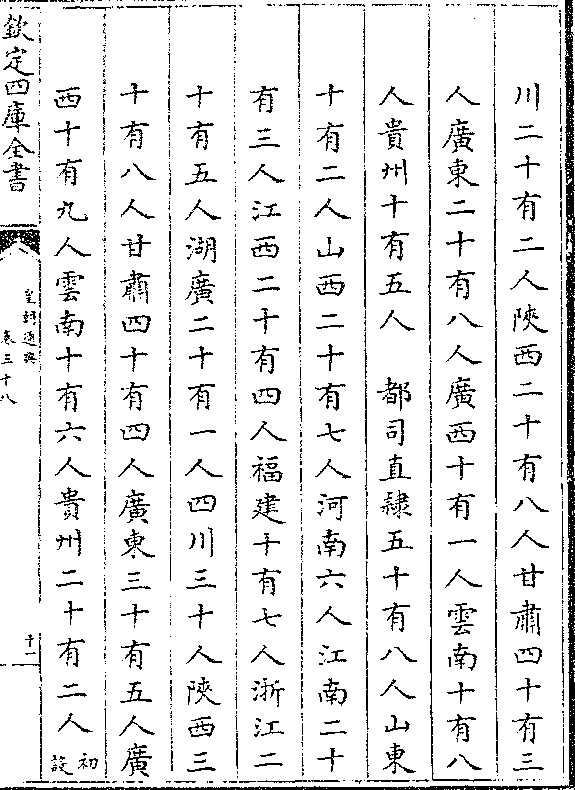 川二十有二人陜西二十有八人甘肅四十有三
人廣東二十有八人廣西十有一人雲南十有八
人貴州十有五人　都司直隸五十有八人山東
十有二人山西二十有七人河南六人江南二十
有三人江西二十有四人福建十有七人浙江二
十有五人湖廣二十有一人四川三十人陜西三
十有八人甘肅四十有四人廣東三十有五人廣
西十有九人雲南十有六人貴州二十有二人初設
欽定四庫全書
皇朝通典
卷三十八
十一